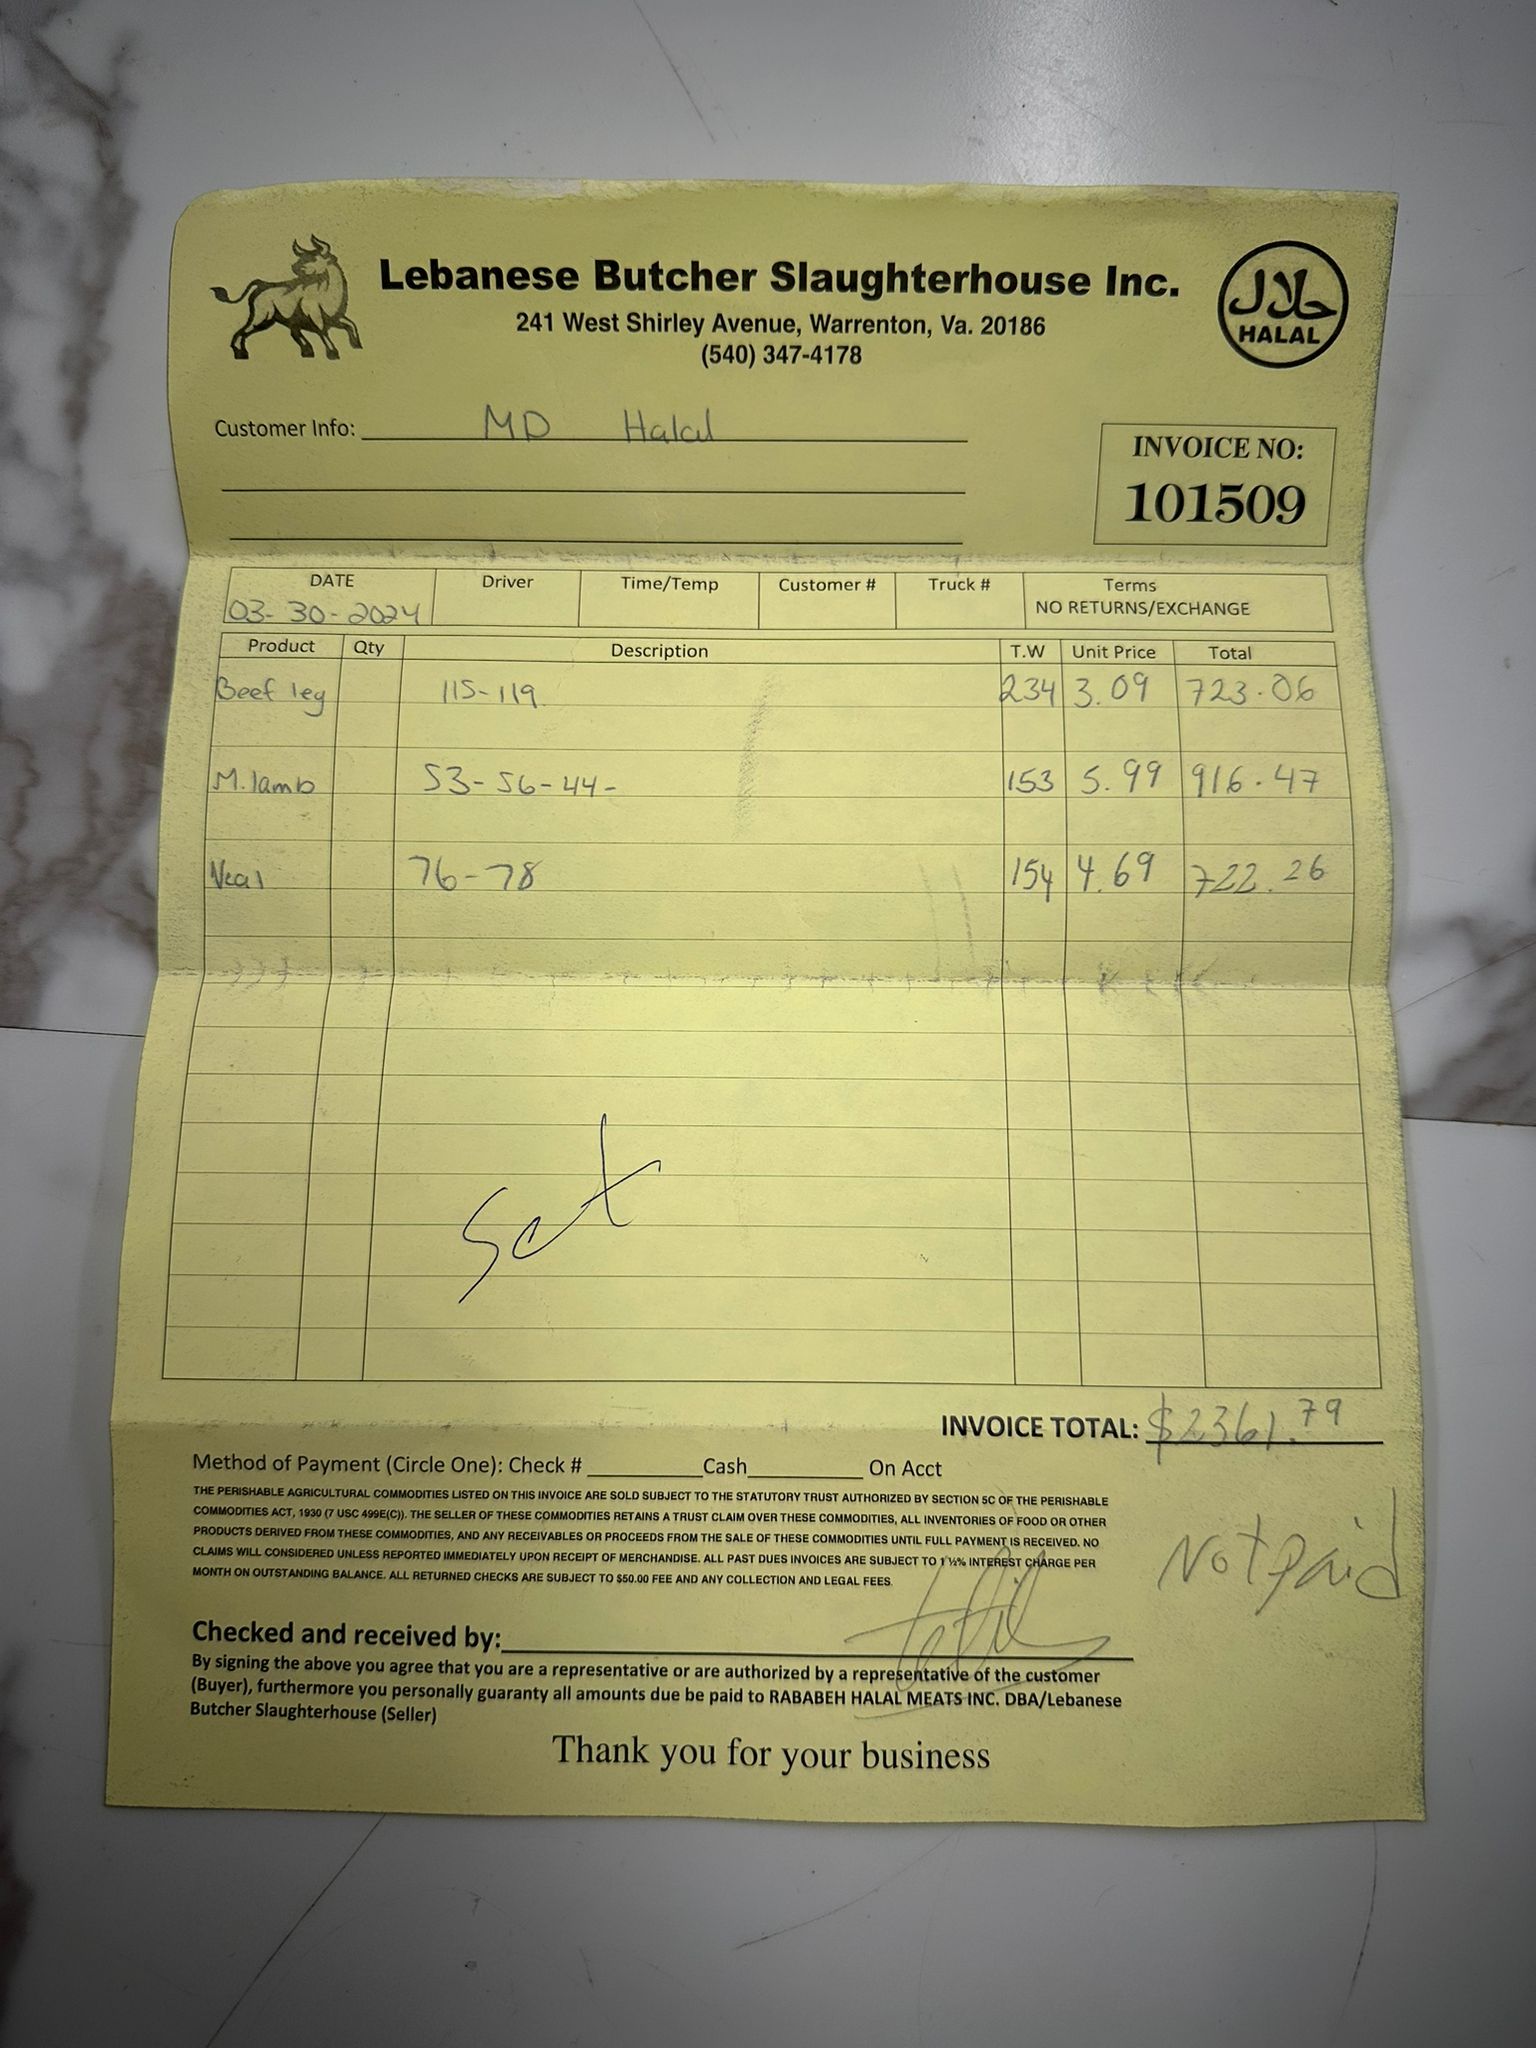 Lebanese Butcher Slaughterhouse Inc.
241 West Shirley Avenue, Warrenton, Va. 20186
(540) 347-4178
حلال
HALAL
Customer Info: MD Halal
INVOICE NO:
101509
DATE Driver Time/Temp Customer # Truck # Terms
03-30-2024 NO RETURNS/EXCHANGE
Product Qty Description T.W Unit Price Total
Beef leg 115-119 234 3.09 723.06
M.lamb 53-56-44- 153 5.99 916.47
Veal 76-78 154 4.69 722.26
Sat
INVOICE TOTAL: $2361.79
Method of Payment (Circle One): Check # Cash On Acct
THE PERISHABLE AGRICULTURAL COMMODITIES LISTED ON THIS INVOICE ARE SOLD SUBJECT TO THE STATUTORY TRUST AUTHORIZED BY SECTION 5C OF THE PERISHABLE
COMMODITIES ACT, 1930 (7 USC 499E(C)). THE SELLER OF THESE COMMODITIES RETAINS A TRUST CLAIM OVER THESE COMMODITIES, ALL INVENTORIES OF FOOD OR OTHER
PRODUCTS DERIVED FROM THESE COMMODITIES, AND ANY RECEIVABLES OR PROCEEDS FROM THE SALE OF THESE COMMODITIES UNTIL FULL PAYMENT IS RECEIVED. NO
CLAIMS WILL CONSIDERED UNLESS REPORTED IMMEDIATELY UPON RECEIPT OF MERCHANDISE. ALL PAST DUES INVOICES ARE SUBJECT TO 1 ½% INTEREST CHARGE PER
MONTH ON OUTSTANDING BALANCE. ALL RETURNED CHECKS ARE SUBJECT TO $50.00 FEE AND ANY COLLECTION AND LEGAL FEES.
Not paid
Checked and received by:
By signing the above you agree that you are a representative or are authorized by a representative of the customer
(Buyer), furthermore you personally guaranty all amounts due be paid to RABABEH HALAL MEATS INC. DBA/Lebanese
Butcher Slaughterhouse (Seller)
Thank you for your business